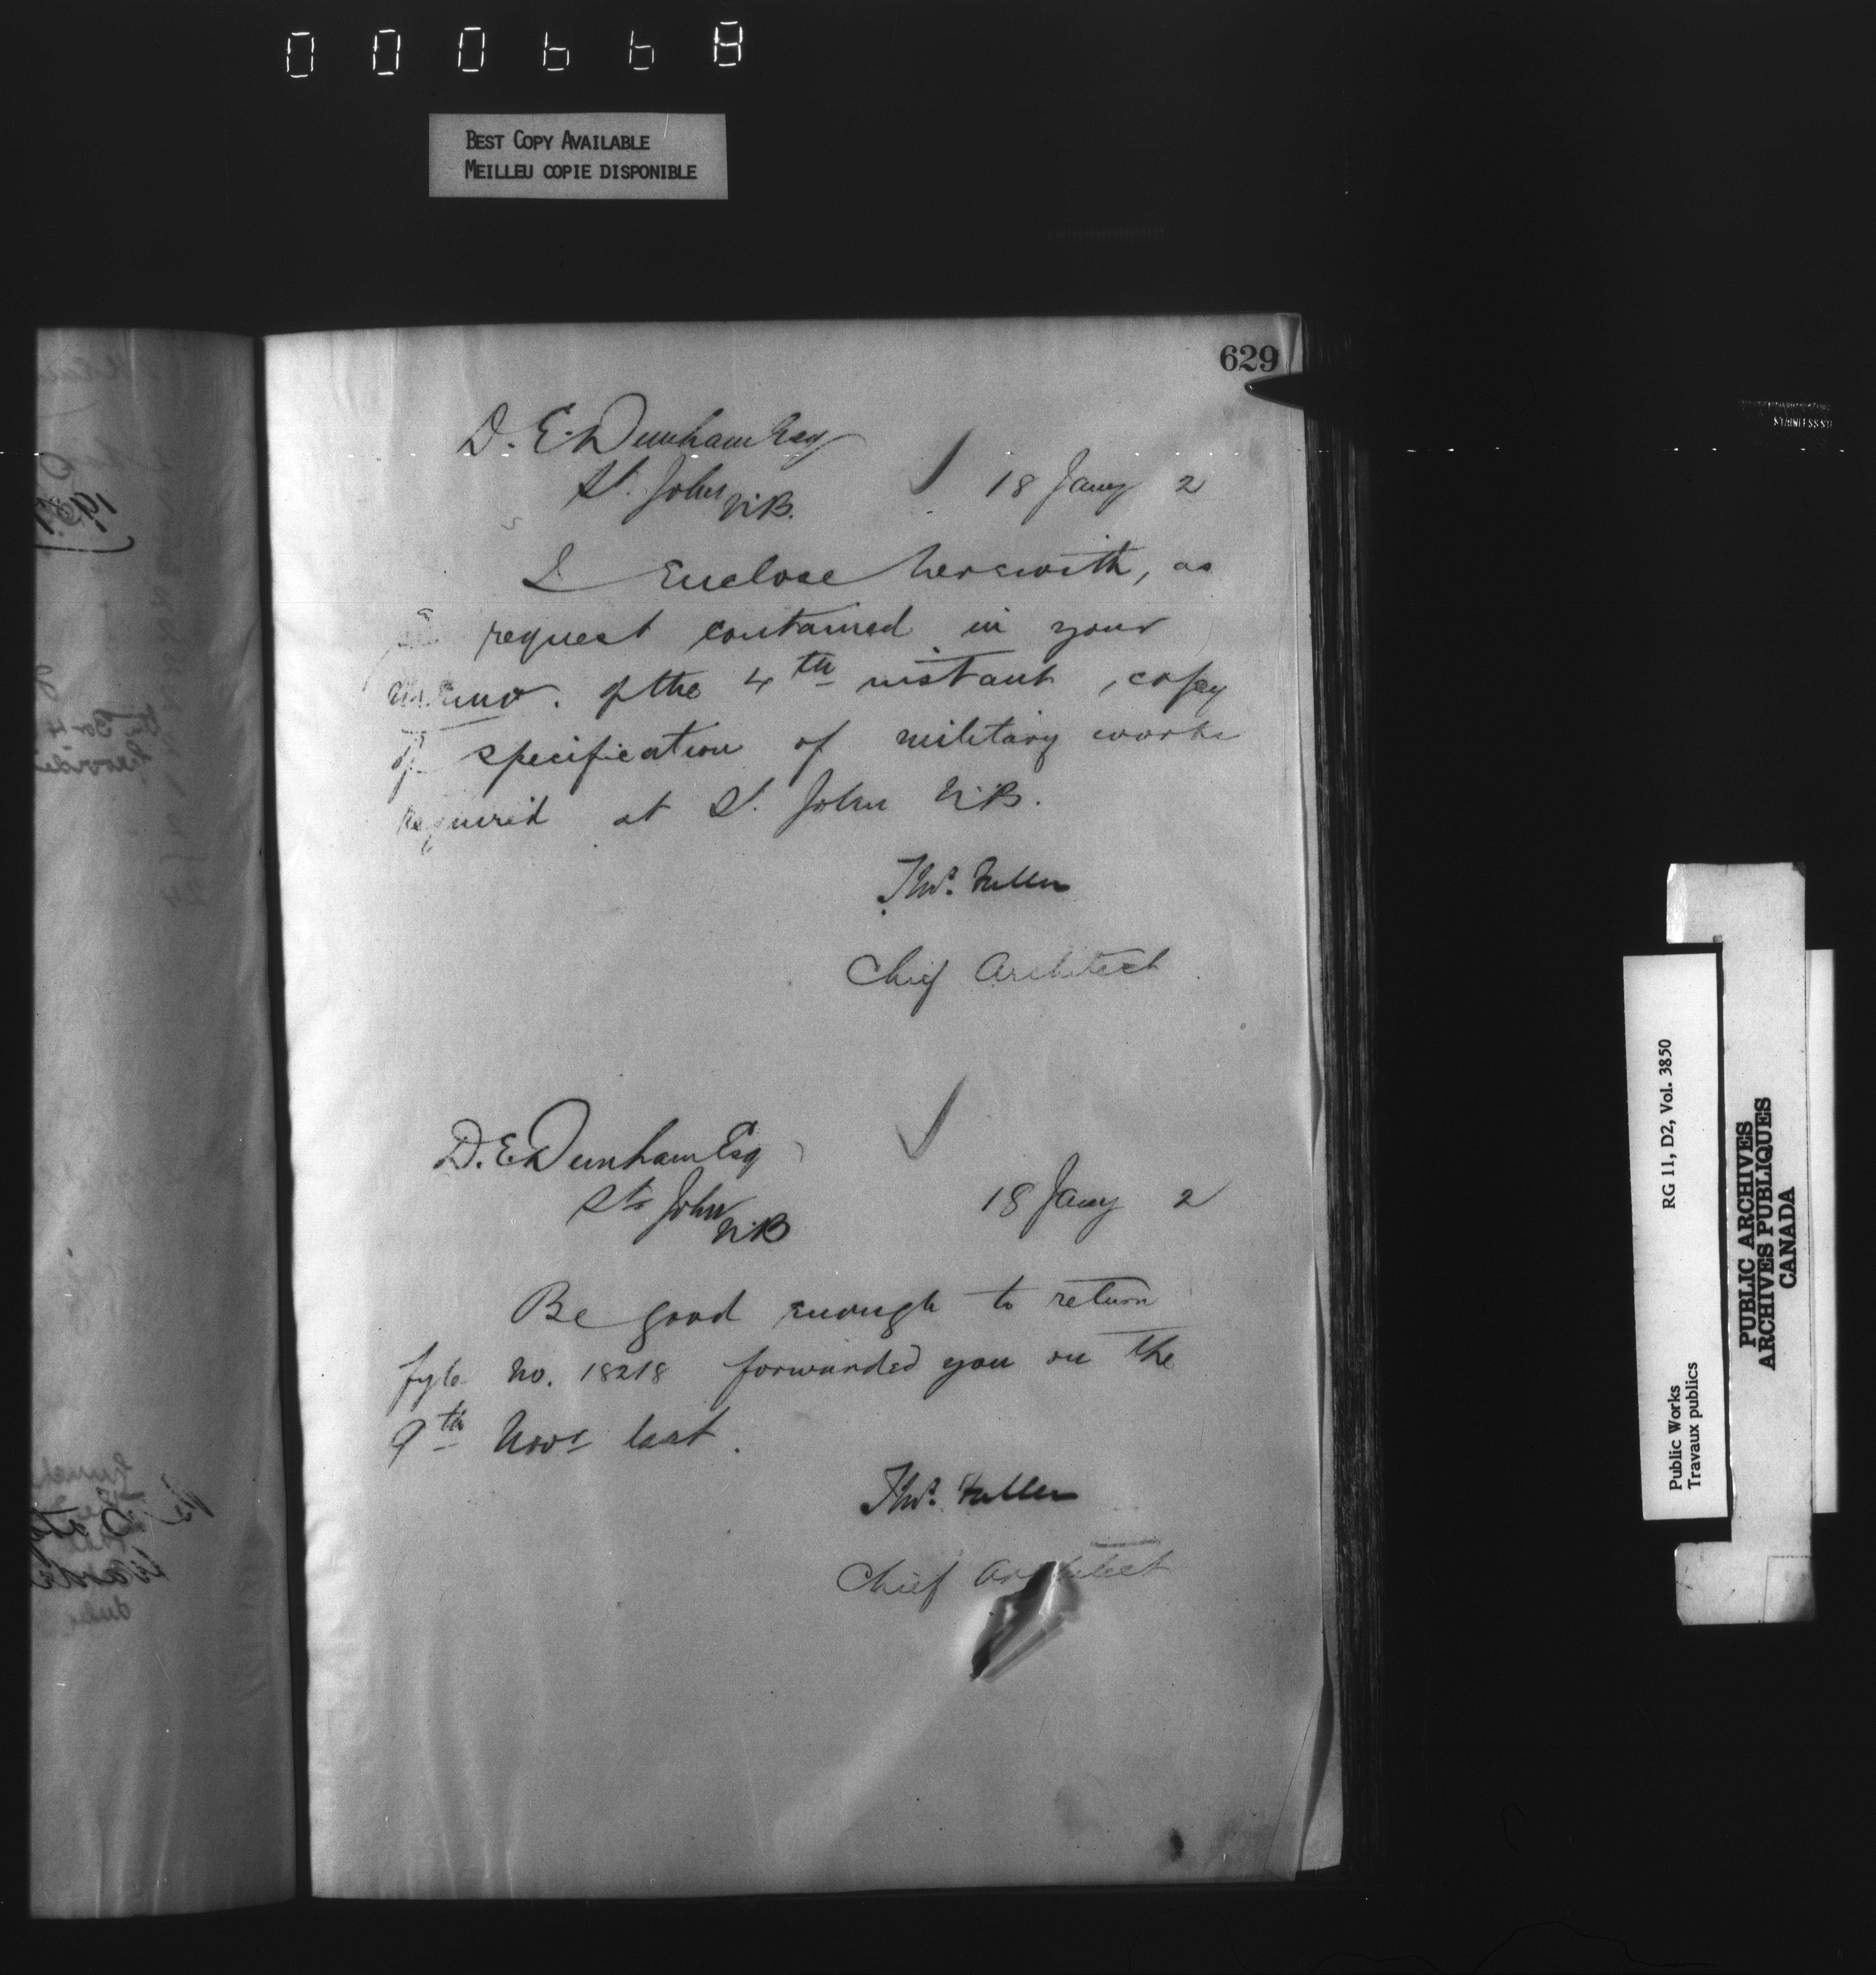 000668
BEST COPY AVAILABLE
MEILLEU COPIE DISPONIBLE
629
D. E. Dunham Esq
St. John
N.B.
18 Jany 2
I Enclose herewith, as
request contained in your
memo. of the 4th instant, copy
of specification of military works
required at St. John N.B.
Thos. Fuller
Chief Architect
D. E. Dunham Esq
St. John
N.B
18 Jany 2
Be good enough to return
fyle No. 18218 forwarded you on the
9th Novr last.
Thos. Fuller
Chief Architect
Public Works
Travaux publics
RG 11, D2, Vol. 3850
PUBLIC ARCHIVES
ARCHIVES PUBLIQUES
CANADA